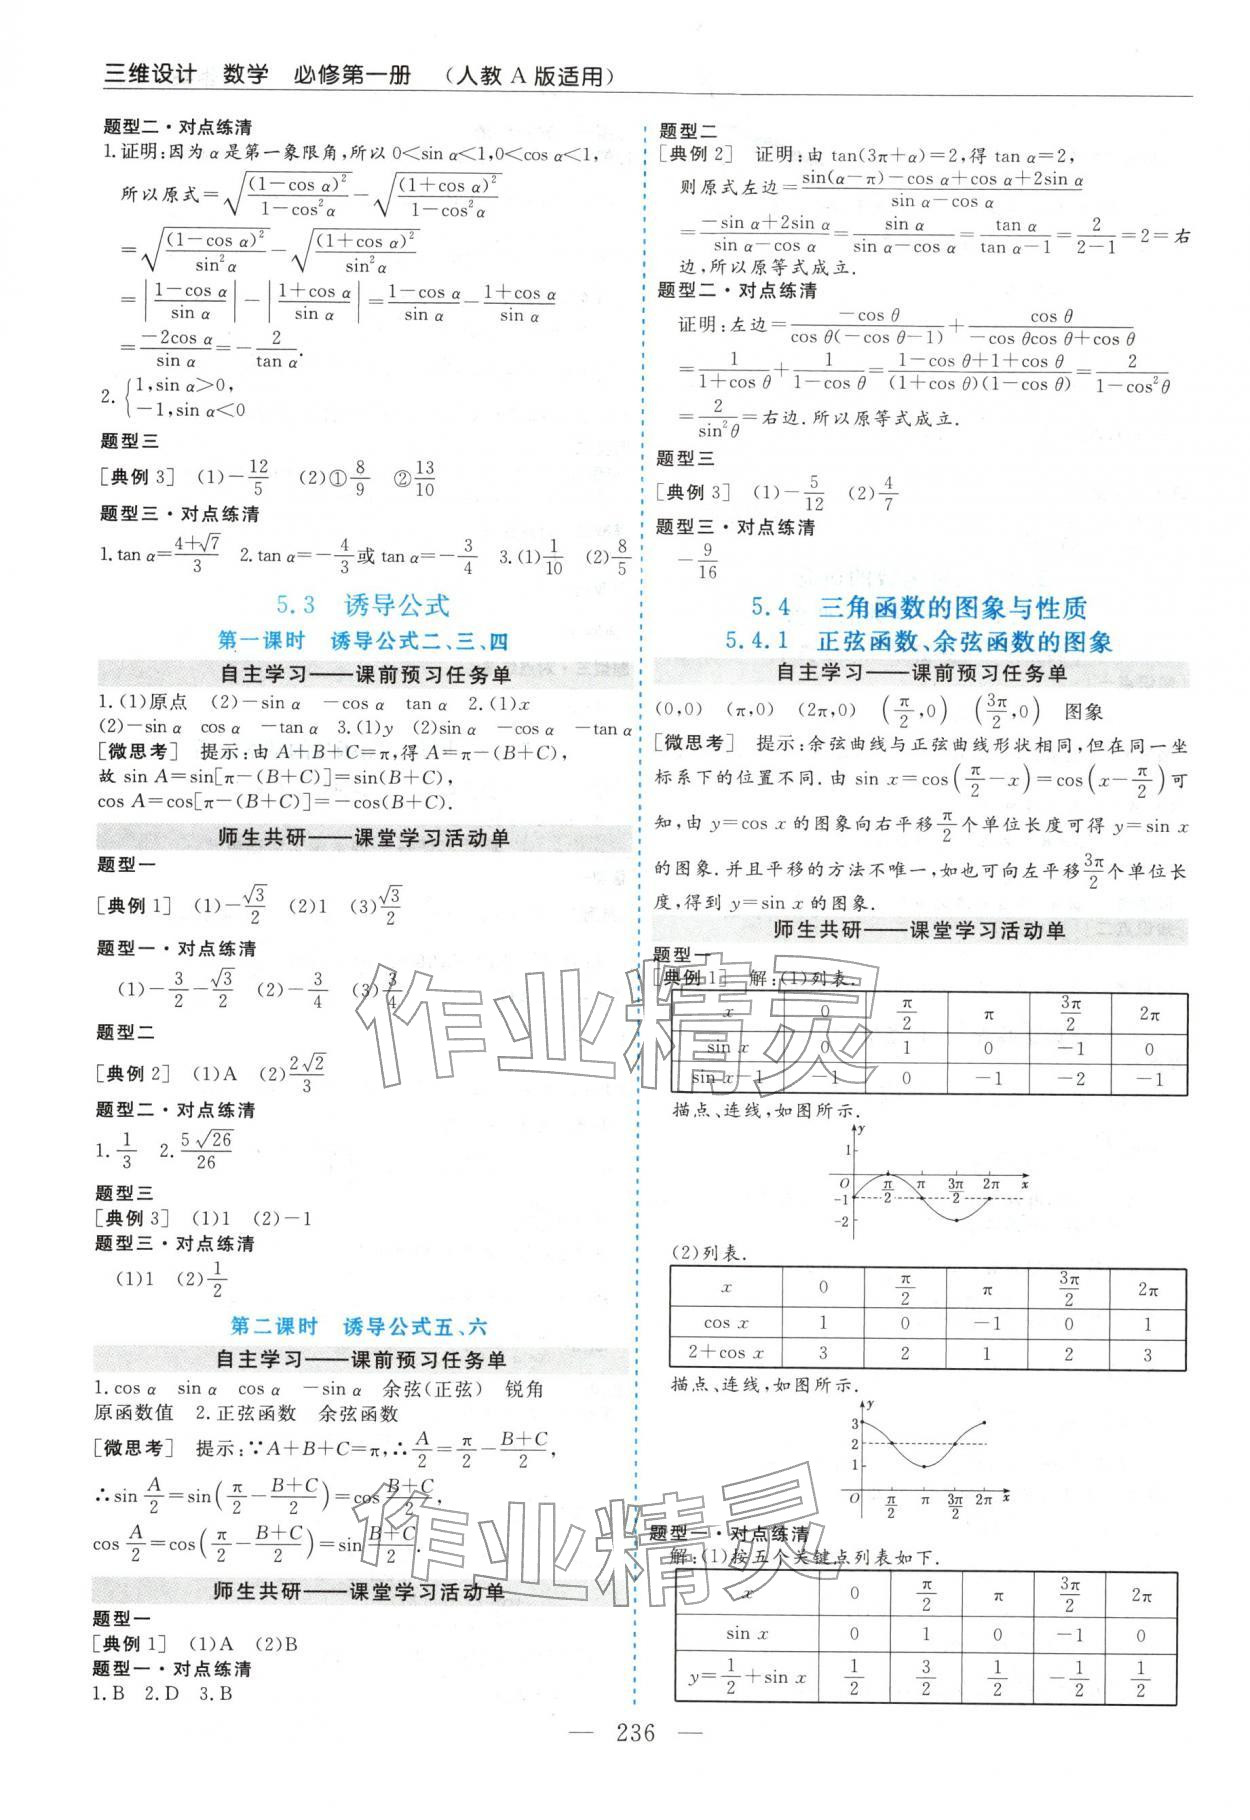 三维设计 数学 必修第一册 (人教 A 版适用)
题型二·对点练清
1.证明:因为 α 是第一象限角,所以 0<sin α<1,0<cos α<1,
所以原式=√((1-cos α)²/(1-cos²α))-√((1+cos α)²/(1-cos²α))
=√((1-cos α)²/sin²α)-√((1+cos α)²/sin²α)
=|(1-cos α)/sin α|-|(1+cos α)/sin α|=(1-cos α)/sin α-(1+cos α)/sin α
=(-2cos α)/sin α=-2/tan α.
2.{1,sin α>0,
-1,sin α<0
题型三
[典例 3] (1)-12/5 (2)①8/9 ②13/10
题型三·对点练清
1.tan α=(4+√7)/3 2.tan α=-4/3或 tan α=-3/4 3.(1)1/10 (2)8/5
5.3 诱导公式
第一课时 诱导公式二、三、四
自主学习——课前预习任务单
1.(1)原点 (2)-sin α -cos α tan α 2.(1)x
(2)-sin α cos α -tan α 3.(1)y (2)sin α -cos α -tan α
[微思考] 提示:由 A+B+C=π,得 A=π-(B+C),
故 sin A=sin[π-(B+C)]=sin(B+C),
cos A=cos[π-(B+C)]=-cos(B+C).
师生共研——课堂学习活动单
题型一
[典例 1] (1)-√3/2 (2)1 (3)√3/2
题型一·对点练清
(1)-3/2-√3/2 (2)-3/4 (3)3/4
题型二
[典例 2] (1)A (2)2√2/3
题型二·对点练清
1.1/3 2.5√26/26
题型三
[典例 3] (1)1 (2)-1
题型三·对点练清
(1)1 (2)1/2
第二课时 诱导公式五、六
自主学习——课前预习任务单
1.cos α sin α cos α -sin α 余弦(正弦) 锐角
原函数值 2.正弦函数 余弦函数
[微思考] 提示:∵A+B+C=π,∴A/2=π/2-(B+C)/2,
∴sin A/2=sin(π/2-(B+C)/2)=cos (B+C)/2,
cos A/2=cos(π/2-(B+C)/2)=sin (B+C)/2.
师生共研——课堂学习活动单
题型一
[典例 1] (1)A (2)B
题型一·对点练清
1.B 2.D 3.B
题型二
[典例 2] 证明:由 tan(3π+α)=2,得 tan α=2,
则原式左边=(sin(α-π)-cos α+cos α+2sin α)/(sin α-cos α)
=(-sin α+2sin α)/(sin α-cos α)=sin α/(sin α-cos α)=tan α/(tan α-1)=2/(2-1)=2=右
边,所以原等式成立.
题型二·对点练清
证明:左边=-cos θ/(cos θ(-cos θ-1))+cos θ/(-cos θcos θ+cos θ)
=1/(1+cos θ)+1/(1-cos θ)=(1-cos θ+1+cos θ)/((1+cos θ)(1-cos θ))=2/(1-cos²θ)
=2/sin²θ=右边.所以原等式成立.
题型三
[典例 3] (1)-5/12 (2)4/7
题型三·对点练清
-9/16
5.4 三角函数的图象与性质
5.4.1 正弦函数、余弦函数的图象
自主学习——课前预习任务单
(0,0) (π,0) (2π,0) (π/2,0) (3π/2,0) 图象
[微思考] 提示:余弦曲线与正弦曲线形状相同,但在同一坐
标系下的位置不同.由 sin x=cos(π/2-x)=cos(x-π/2)可
知,由 y=cos x 的图象向右平移π/2个单位长度可得 y=sin x
的图象.并且平移的方法不唯一,如也可向左平移3π/2个单位长
度,得到 y=sin x 的图象.
师生共研——课堂学习活动单
题型一
[典例 1] 解:(1)列表.
x 0 π/2 π 3π/2 2π
sin x 0 1 0 -1 0
sin x-1 -1 0 -1 -2 -1
描点、连线,如图所示.
y
1
O π/2 π 3π/2 2π x
-1
-2
(2)列表.
x 0 π/2 π 3π/2 2π
cos x 1 0 -1 0 1
2+cos x 3 2 1 2 3
描点、连线,如图所示.
y
3
2
1
O π/2 π 3π/2 2π x
题型一·对点练清
解:(1)按五个关键点列表如下.
x 0 π/2 π 3π/2 2π
sin x 0 1 0 -1 0
y=1/2+sin x 1/2 3/2 1/2 -1/2 1/2
作业精灵
作业精灵
— 236 —